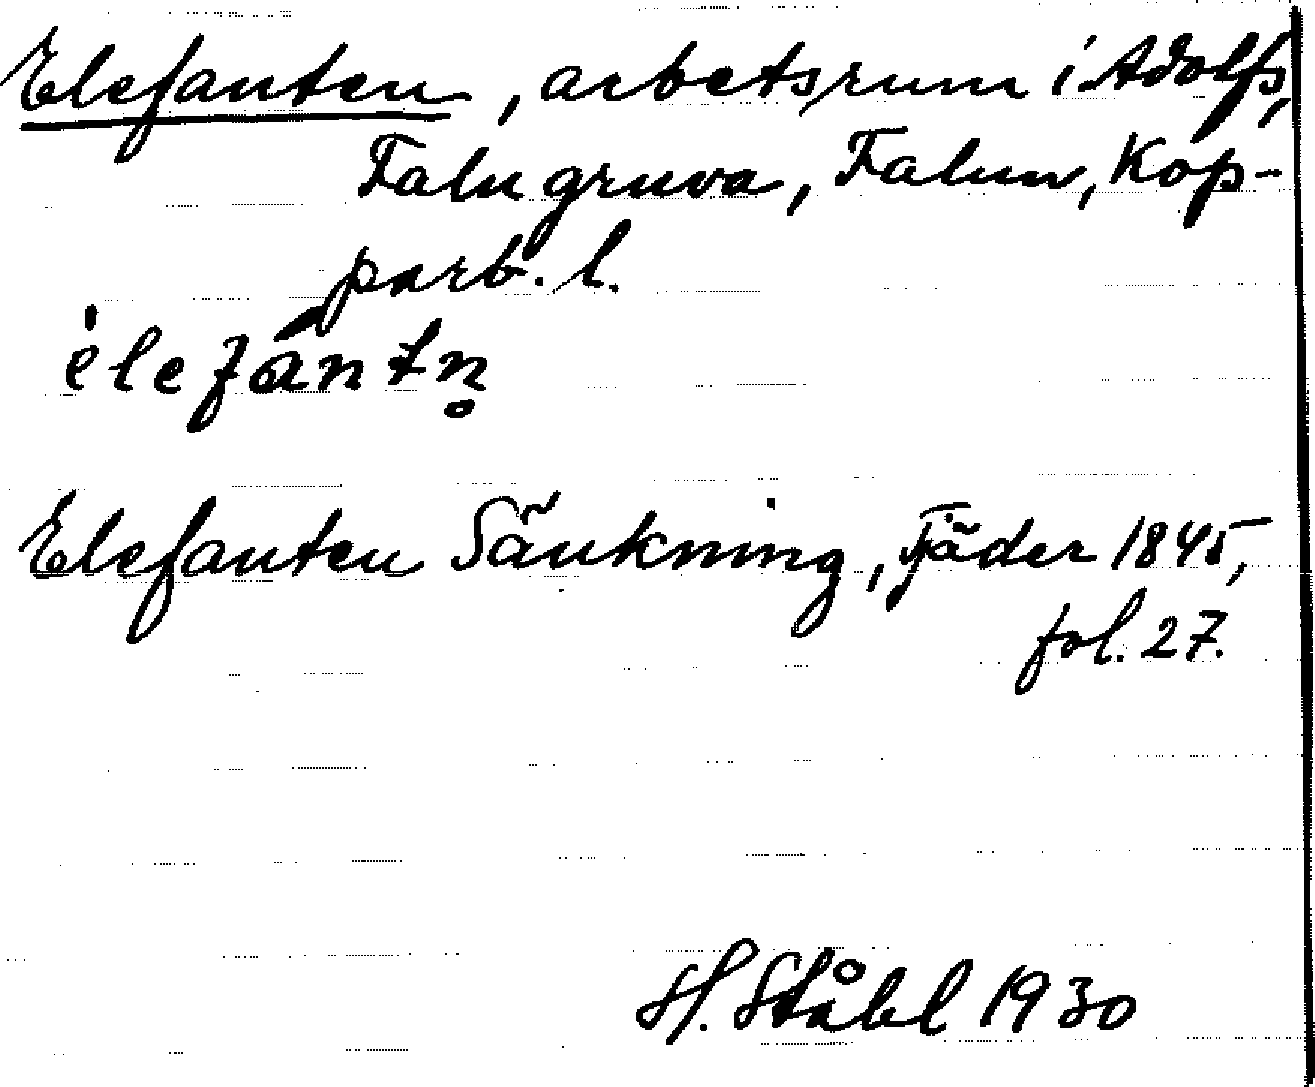 Elefanten, arbetsrum i Adolfs,
Falu gruva, Falun, Kop-
parb. l.
èlefántn̥
Elefanten Sänkning, Tjäder 1845,
fol. 27.
H. Ståhl 1930